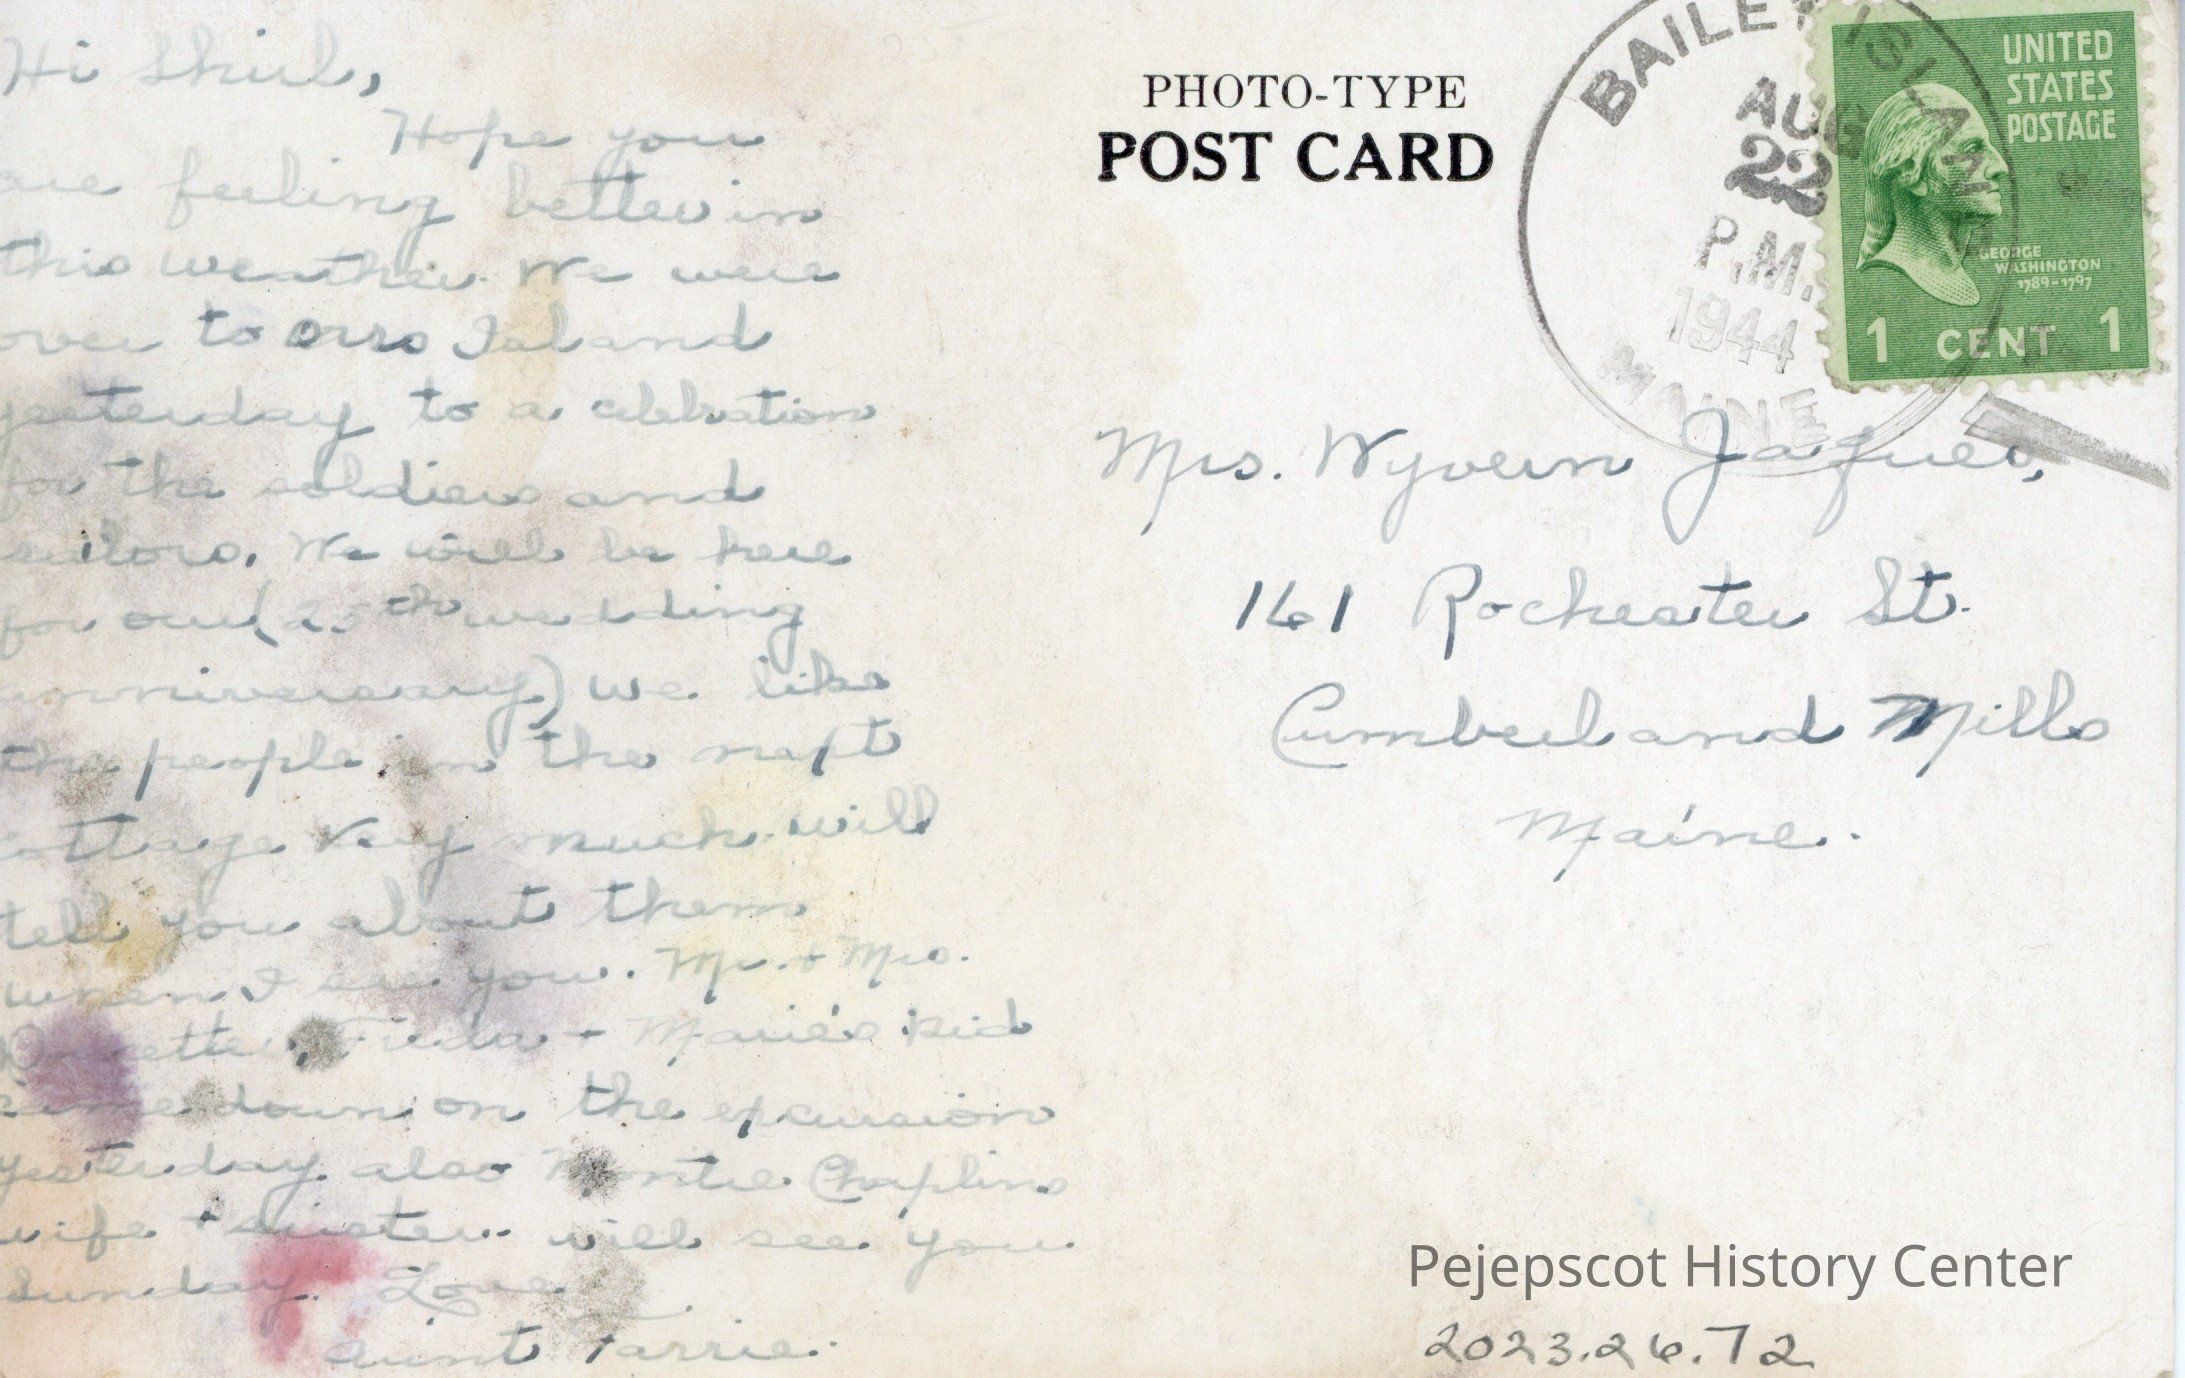 Hi Shirl,
Hope you
are feeling better in
this weather. We were
over to Orrs Island
yesterday to a celbration
for the soldiers and
sailors. We will be here
for our (25th wedding
anniversary) we like
the people in the next
cottage very much. will
tell you about them
when I see you. Mr. + Mrs.
Freda + Marie's kid
came down on the excursion
yesterday also Montie Chaplins
wife + sister. will see you
Sunday. Love
aunt
PHOTO-TYPE
POST CARD
BAILEY ISLAND
AUG
22
P.M.
1944
MAINE
UNITED
STATES
POSTAGE
GEORGE
WASHINGTON
1789-1797
1 CENT 1
Mrs. Wyvern Jaques,
161 Rochester St.
Cumberland Mills
Maine.
Pejepscot History Center
2023.26.72